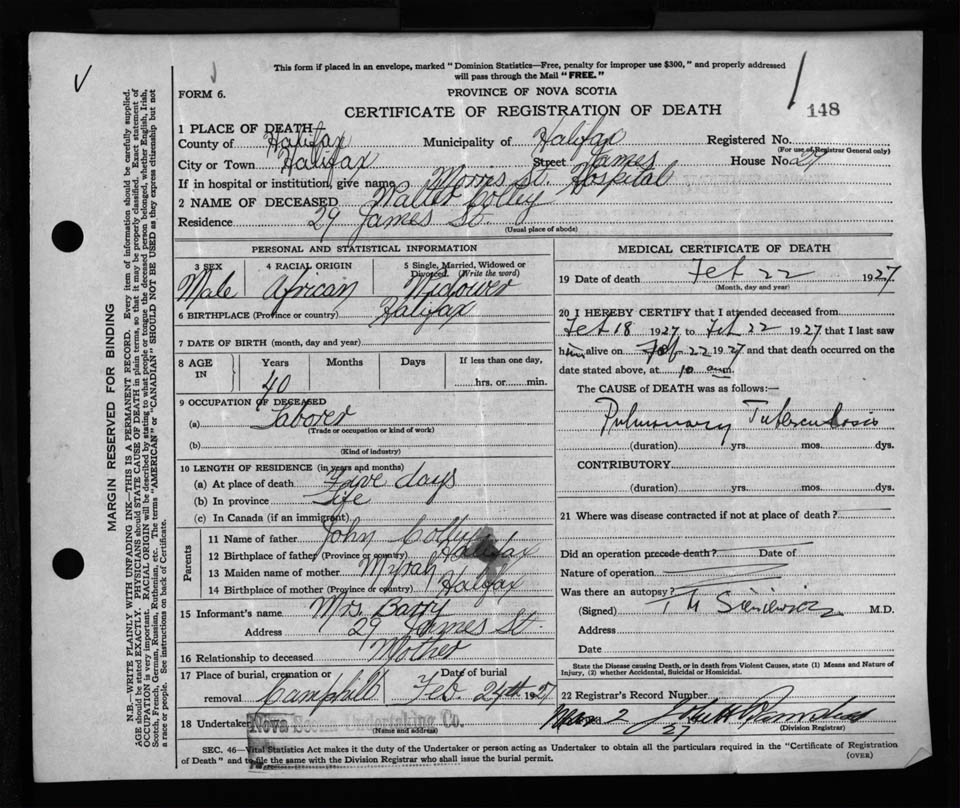 This form if placed in an envelope, marked "Dominion Statistics—Free, penalty for improper use $300," and properly addressed
will pass through the Mail "FREE."
FORM 6.
PROVINCE OF NOVA SCOTIA
CERTIFICATE OF REGISTRATION OF DEATH
148
1 PLACE OF DEATH
County of Halifax Municipality of Halifax Registered No.
(For use of Registrar General only)
City or Town Halifax Street James House No. 29
If in hospital or institution, give name Morris St. Hospital
2 NAME OF DECEASED Walter Colley
Residence 29 James St
(Usual place of abode)
PERSONAL AND STATISTICAL INFORMATION
3 SEX Male
4 RACIAL ORIGIN African
5 Single, Married, Widowed or Divorced. (Write the word) Widower
6 BIRTHPLACE (Province or country) Halifax
7 DATE OF BIRTH (month, day and year)
8 AGE IN Years 40 Months Days If less than one day, hrs. or min.
9 OCCUPATION OF DECEASED
(a) Laborer
(Trade or occupation or kind of work)
(b)
(Kind of industry)
10 LENGTH OF RESIDENCE (in years and months)
(a) At place of death Five days
(b) In province Life
(c) In Canada (if an immigrant)
Parents
11 Name of father John Colley
12 Birthplace of father (Province or country) Halifax
13 Maiden name of mother Myrah
14 Birthplace of mother (Province or country) Halifax
15 Informant's name Mrs. Barry
Address 29 James St.
16 Relationship to deceased Mother
17 Place of burial, cremation or removal Camphill Date of burial Feb. 24th 1927
18 Undertaker Nova Scotia Undertaking Co.
(Name and address)
MEDICAL CERTIFICATE OF DEATH
19 Date of death Feb 22 1927
(Month, day and year)
20 I HEREBY CERTIFY that I attended deceased from
Feb 18 1927 to Feb 22 1927 that I last saw
him alive on Feb 22 1927 and that death occurred on the
date stated above, at 10 am.
The CAUSE of DEATH was as follows:—
Pulmonary Tuberculosis
(duration) yrs. mos. dys.
CONTRIBUTORY
(duration) yrs. mos. dys.
21 Where was disease contracted if not at place of death?
Did an operation precede death? Date of
Nature of operation
Was there an autopsy?
(Signed) M.D.
Address
Date
State the Disease causing Death, or in death from Violent Causes, state (1) Means and Nature of
Injury, (2) whether Accidental, Suicidal or Homicidal.
22 Registrar's Record Number
2 27
(Division Registrar)
SEC. 46—Vital Statistics Act makes it the duty of the Undertaker or person acting as Undertaker to obtain all the particulars required in the "Certificate of Registration
of Death" and to file the same with the Division Registrar who shall issue the burial permit.
(OVER)
MARGIN RESERVED FOR BINDING
N.B.—WRITE PLAINLY WITH UNFADING INK—THIS IS A PERMANENT RECORD. Every item of information should be carefully supplied.
AGE should be stated EXACTLY. PHYSICIANS should STATE CAUSE OF DEATH in plain terms, so that it may be properly classified. Exact statement of
OCCUPATION is very important. RACIAL ORIGIN will be described by stating to what people or tongue the deceased person belonged, whether English, Irish,
Scotch, French, German, Russian, Ruthenian, etc. The terms "AMERICAN" or "CANADIAN" SHOULD NOT BE USED as they express citizenship but not
a race or people. See instructions on back of Certificate.